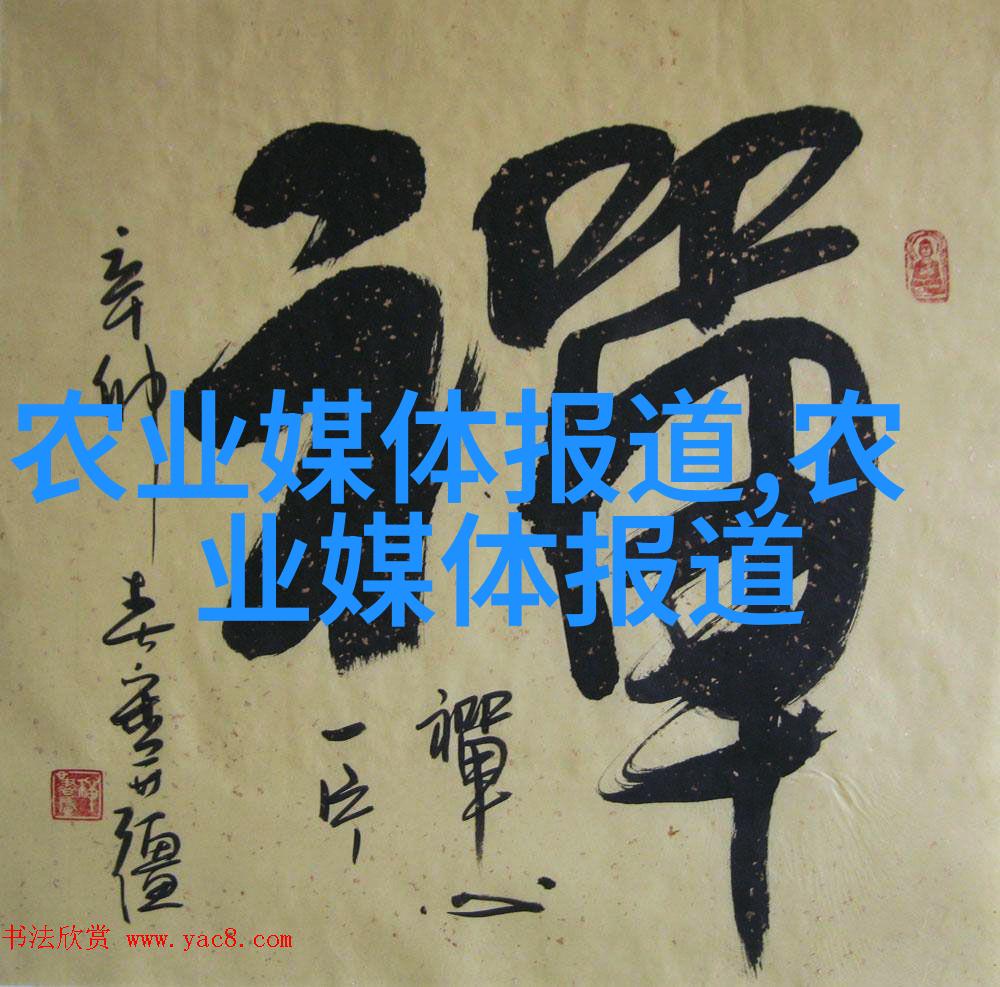 禪
禪心
一片
辛卯春
农业媒体报道,农
业媒体报道
书法欣赏 www.yac8.com